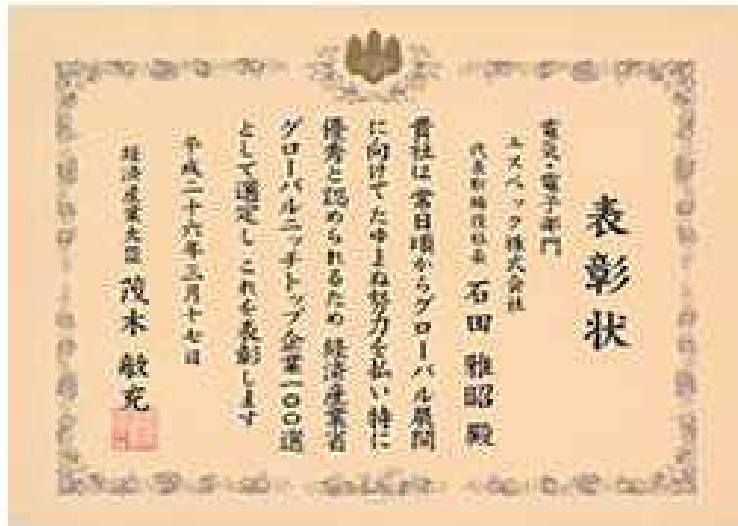 表彰状
電気・電子部門
エスペック株式会社
代表取締役社長 石田 雅昭 殿
貴社は常日頃からグローバル展開
に向けてたゆまぬ努力を払い特に
優秀と認められるため 経済産業省
グローバルニッチトップ企業一〇〇選
として選定し これを表彰します
平成二十六年三月十七日
経済産業大臣 茂木 敏充